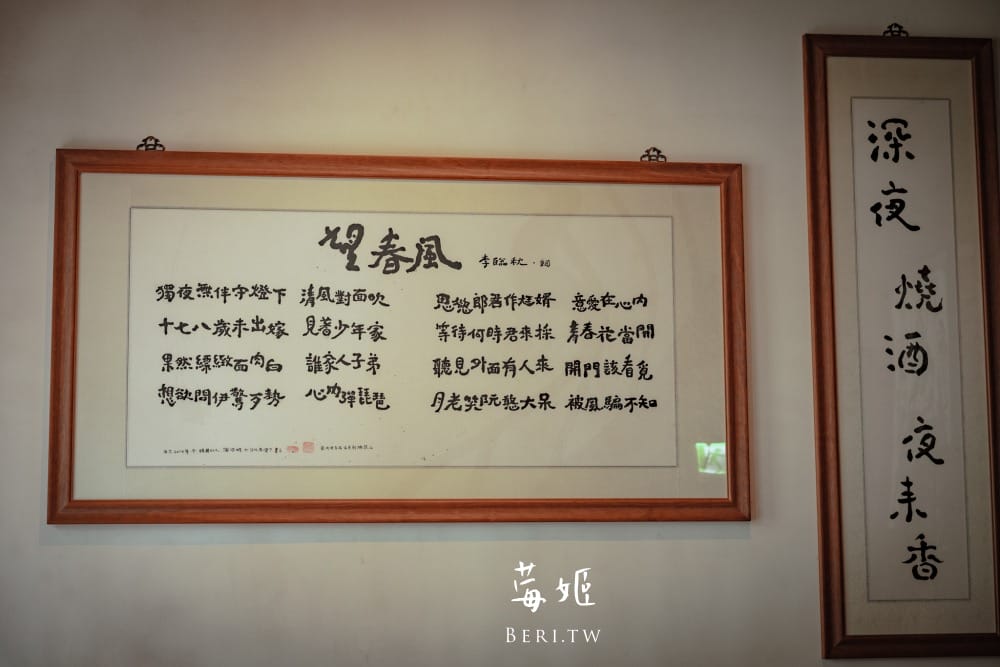 望春風 李臨秋・詞
獨夜無伴守燈下 清風對面吹
十七八歲未出嫁 見著少年家
果然縹緻面肉白 誰家人子弟
想欲問伊驚歹勢 心內彈琵琶
思慾郎君作尪婿 意愛在心內
等待何時君來採 青春花當開
聽見外面有人來 開門該看覓
月老笑阮憨大呆 被風騙不知
深夜 燒酒 夜來香
莓姬
BERI.TW